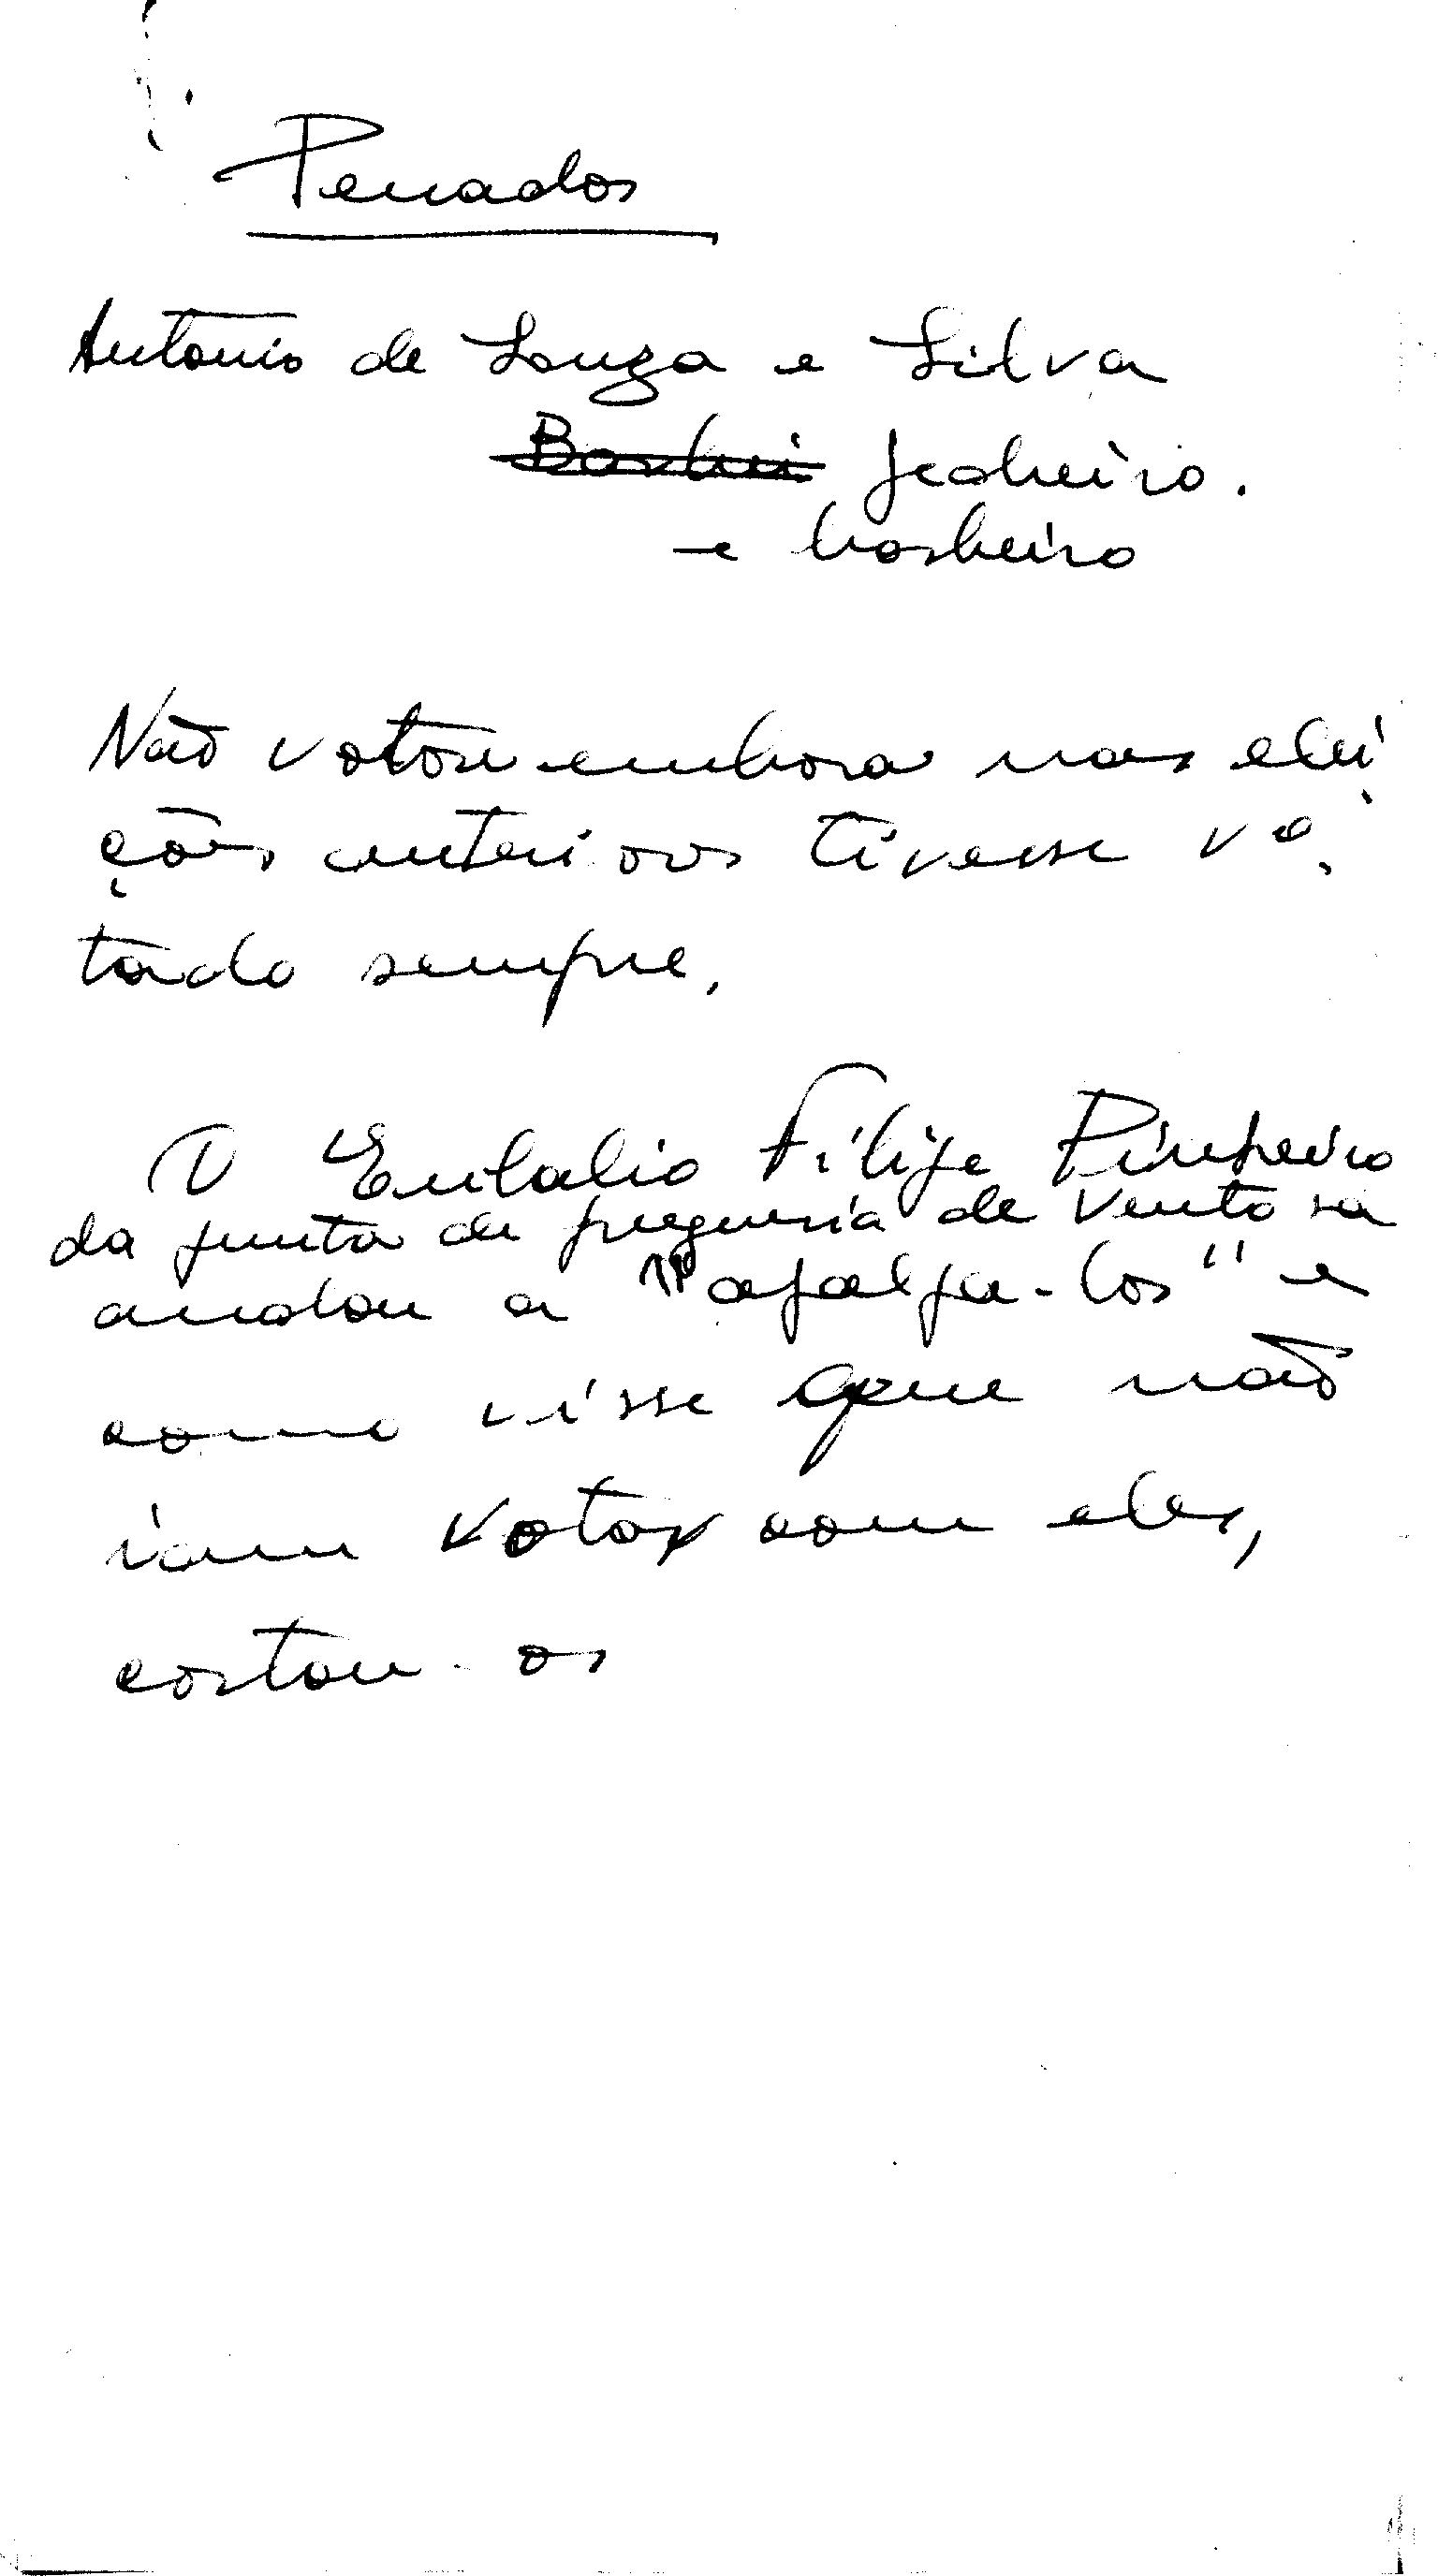 Penados
Antonio de Souza e Silva
pedreiro.
e barbeiro
Não votou embora nas elei
ções anteriores tivesse vo-
tado sempre.
O Eulalio Filipe Pinheiro
da junta de freguesia de Ventosa
andou a "apalpa-los" e
como visse que não
iam votar com eles,
cortou-os